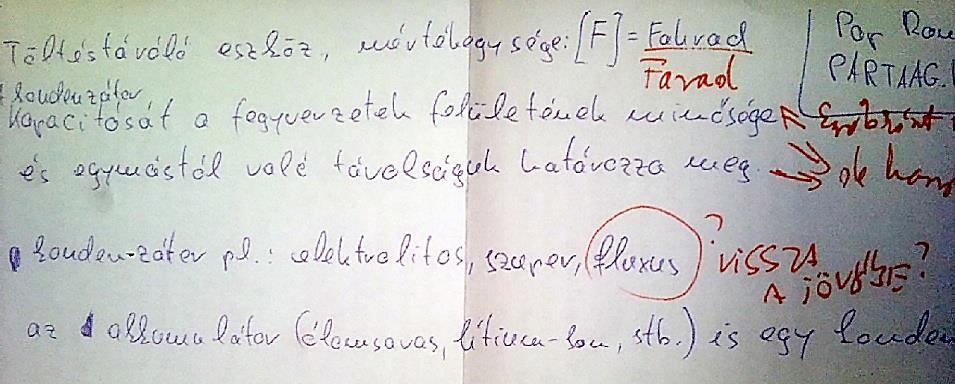 Töltéstároló eszköz, mértékegysége: [F] = Fahrad
Farad
Por
PÁRTAAG.
kondenzátor
Kapacitását a fegyverzetek felületének minősége
és egymástól való távolságuk határozza meg.
konden-zátor pl.: elektrolitos, szuper, fluxus ? VISSZA
A JÖVŐBE?
az akkumulátor (ólomsavas, lítium-ion, stb.) is egy konden